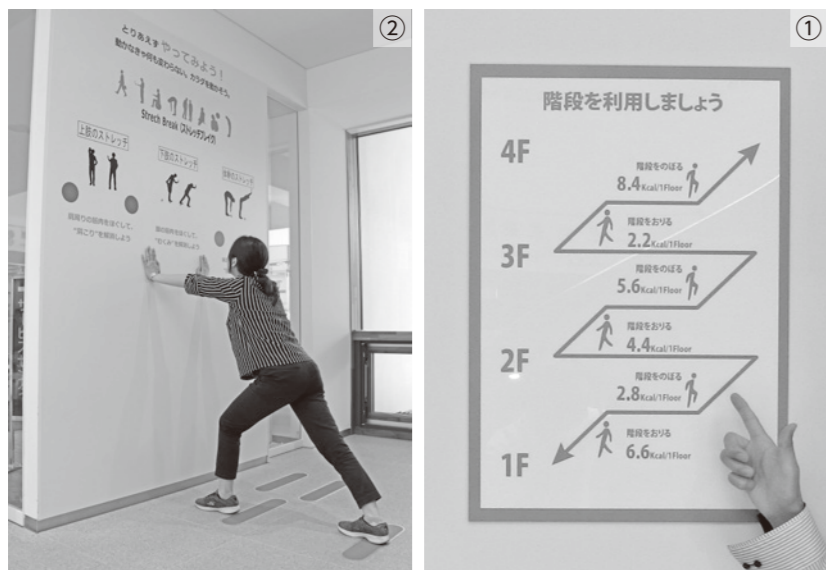 ②
とりあえず やってみよう！
動かなきゃ何も変わらない、カラダを動かそう。
Strech Break（ストレッチブレイク）
上肢のストレッチ
下肢のストレッチ
体幹のストレッチ
肩周りの筋肉をほぐして、
“肩こり”を解消しよう
“むくみ”を解消しよう
①
階段を利用しましょう
4F
階段をのぼる
8.4Kcal/1Floor
階段をおりる
2.2Kcal/1Floor
3F
階段をのぼる
5.6Kcal/1Floor
階段をおりる
4.4Kcal/1Floor
2F
階段をのぼる
2.8Kcal/1Floor
階段をおりる
6.6Kcal/1Floor
1F